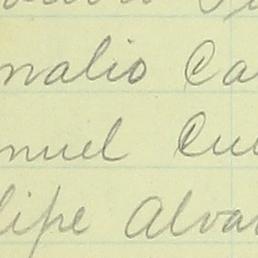 nalio Ca
nuel Cu
lipe Alva